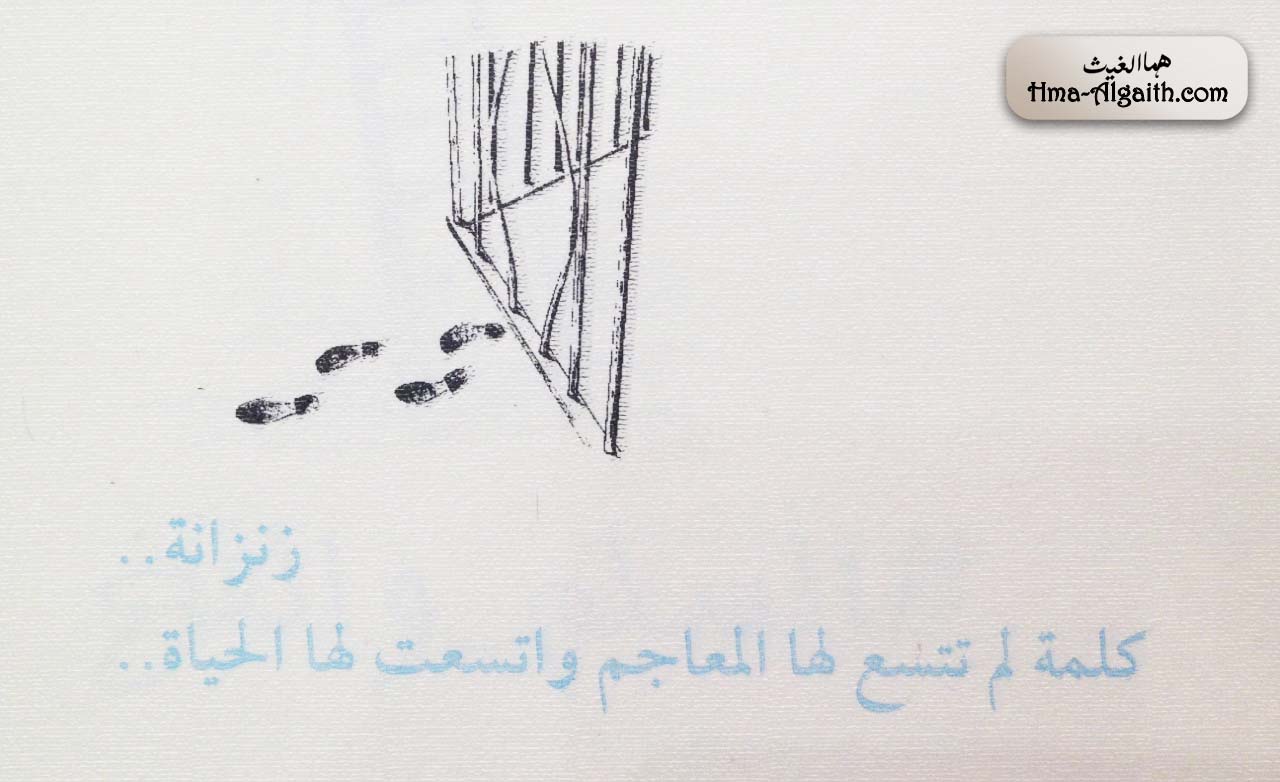 هماالغيث
Hma-Algaith.com
زنزانة..
كلمة لم تتسع لها المعاجم واتسعت لها الحياة..